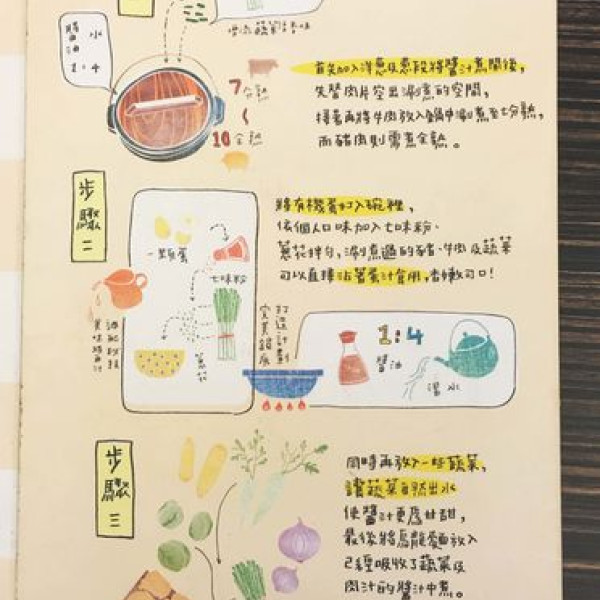 醬油 水
1:4
7分熟
10全熟
首先加入洋蔥及蔥段將醬汁煮開後,
先替肉片空出涮煮的空間,
接著再將牛肉放入鍋中涮煮至七分熟,
而豬肉則需煮全熟。
步驟二
將有機蛋打入碗裡,
依個人口味加入七味粉、
蔥花拌勻,涮煮過的豬、牛肉及蔬菜
可以直接沾著蛋汁食用,香嫩可口!
一顆蛋
七味粉
蔥花
打造計劃
完美鍋底
1:4
醬油
滾水
步驟三
同時再放入一些蔬菜,
讓蔬菜自然出水
使醬汁更為甘甜,
最後將烏龍麵放入
已經吸收了蔬菜及
肉汁的醬汁中煮。